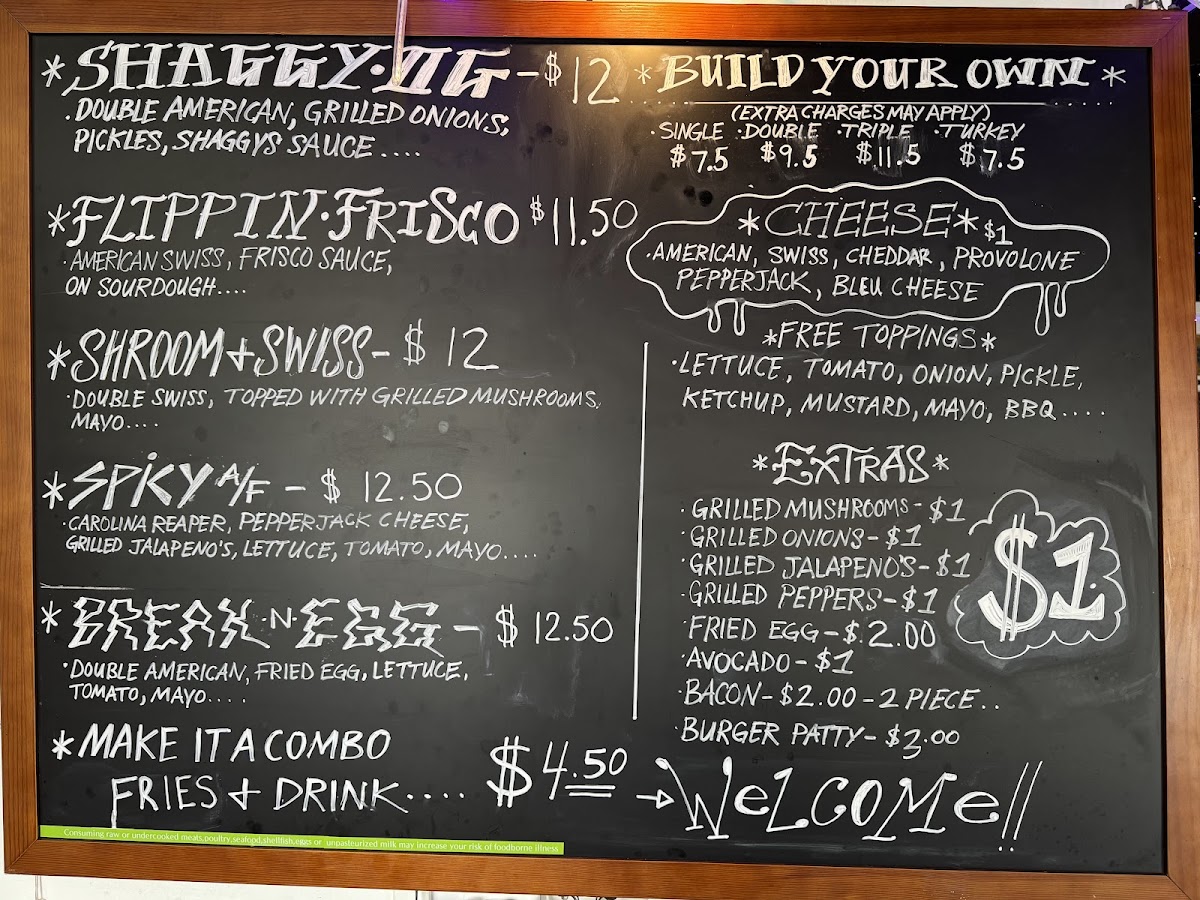 *SHAGGY·OG-$12
·DOUBLE AMERICAN, GRILLED ONIONS,
PICKLES, SHAGGYS SAUCE....
*FLIPPIN·FRISCO $11.50
·AMERICAN SWISS, FRISCO SAUCE,
ON SOURDOUGH....
*SHROOM+SWISS-$12
·DOUBLE SWISS, TOPPED WITH GRILLED MUSHROOMS,
MAYO....
*SPiKY A/F - $12.50
·CAROLINA REAPER, PEPPERJACK CHEESE,
GRILLED JALAPENO'S, LETTUCE, TOMATO, MAYO....
*BREAK·N·EGG - $12.50
·DOUBLE AMERICAN, FRIED EGG, LETTUCE,
TOMATO, MAYO....
*MAKE IT A COMBO
FRIES + DRINK.... $4.50
Consuming raw or undercooked meats,poultry,seafopd,shellfish,eggs or unpasteurized milk may increase your risk of foodborne illness
*BUILD YOUR OWN*
(EXTRA CHARGES MAY APPLY)
·SINGLE ·DOUBLE ·TRIPLE ·TURKEY
$7.5 $9.5 $11.5 $7.5
*CHEESE* $1
·AMERICAN, SWISS, CHEDDAR, PROVOLONE
PEPPERJACK, BLEU CHEESE
*FREE TOPPINGS*
·LETTUCE, TOMATO, ONION, PICKLE,
KETCHUP, MUSTARD, MAYO, BBQ....
*EXTRAS*
·GRILLED MUSHROOMS-$1
·GRILLED ONIONS-$1
·GRILLED JALAPENO'S-$1
·GRILLED PEPPERS-$1
·FRIED EGG-$2.00
·AVOCADO-$1
·BACON-$2.00-2 PIECE..
·BURGER PATTY-$3.00
$1
→WeLCOMe!!